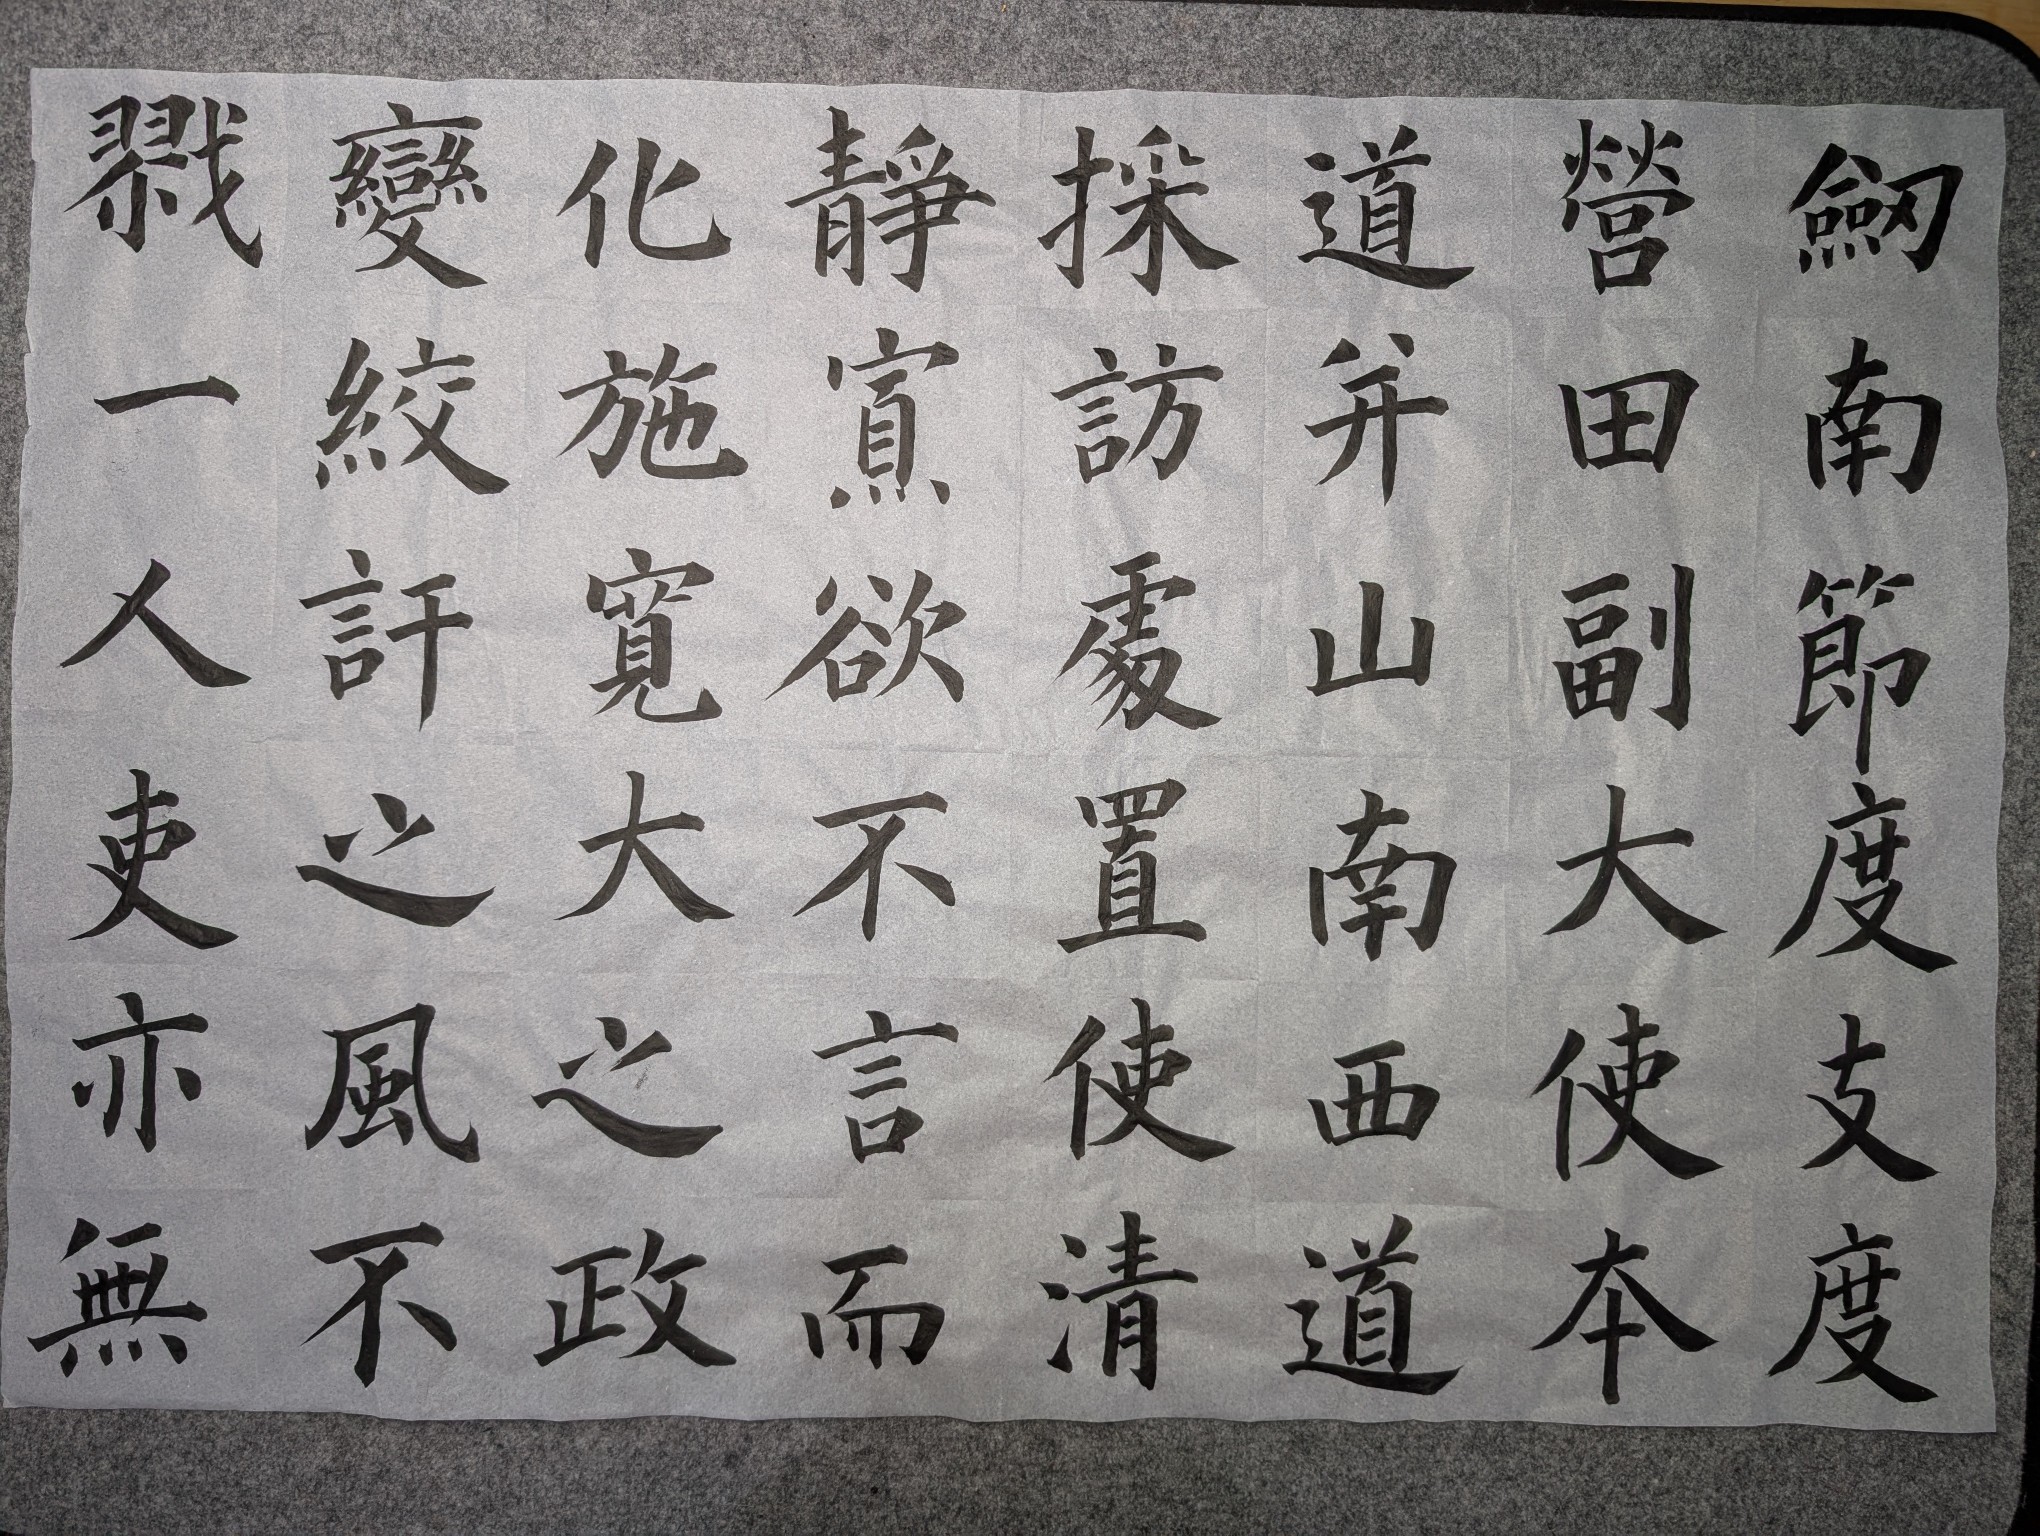 劒南節度支度
營田副大使本
道并山南西道
採訪處置使清
靜寡欲不言而
化施寬大之政
變絞訐之風不
戮一人吏亦無